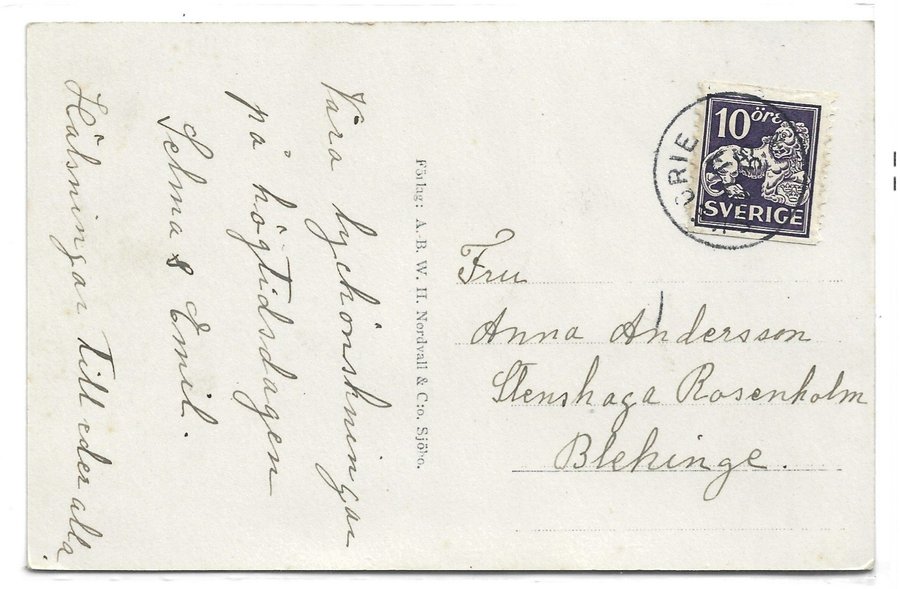 Våra lyckönskningar
på högtidsdagen
Selma & Emil.
Hälsningar till eder alla
Förlag: A.-B. W. H. Nordvall & C:o. Sjöbo.
10 öre
SVERIGE
Fru
Anna Andersson
Stenshaga Rosenholm
Blekinge.